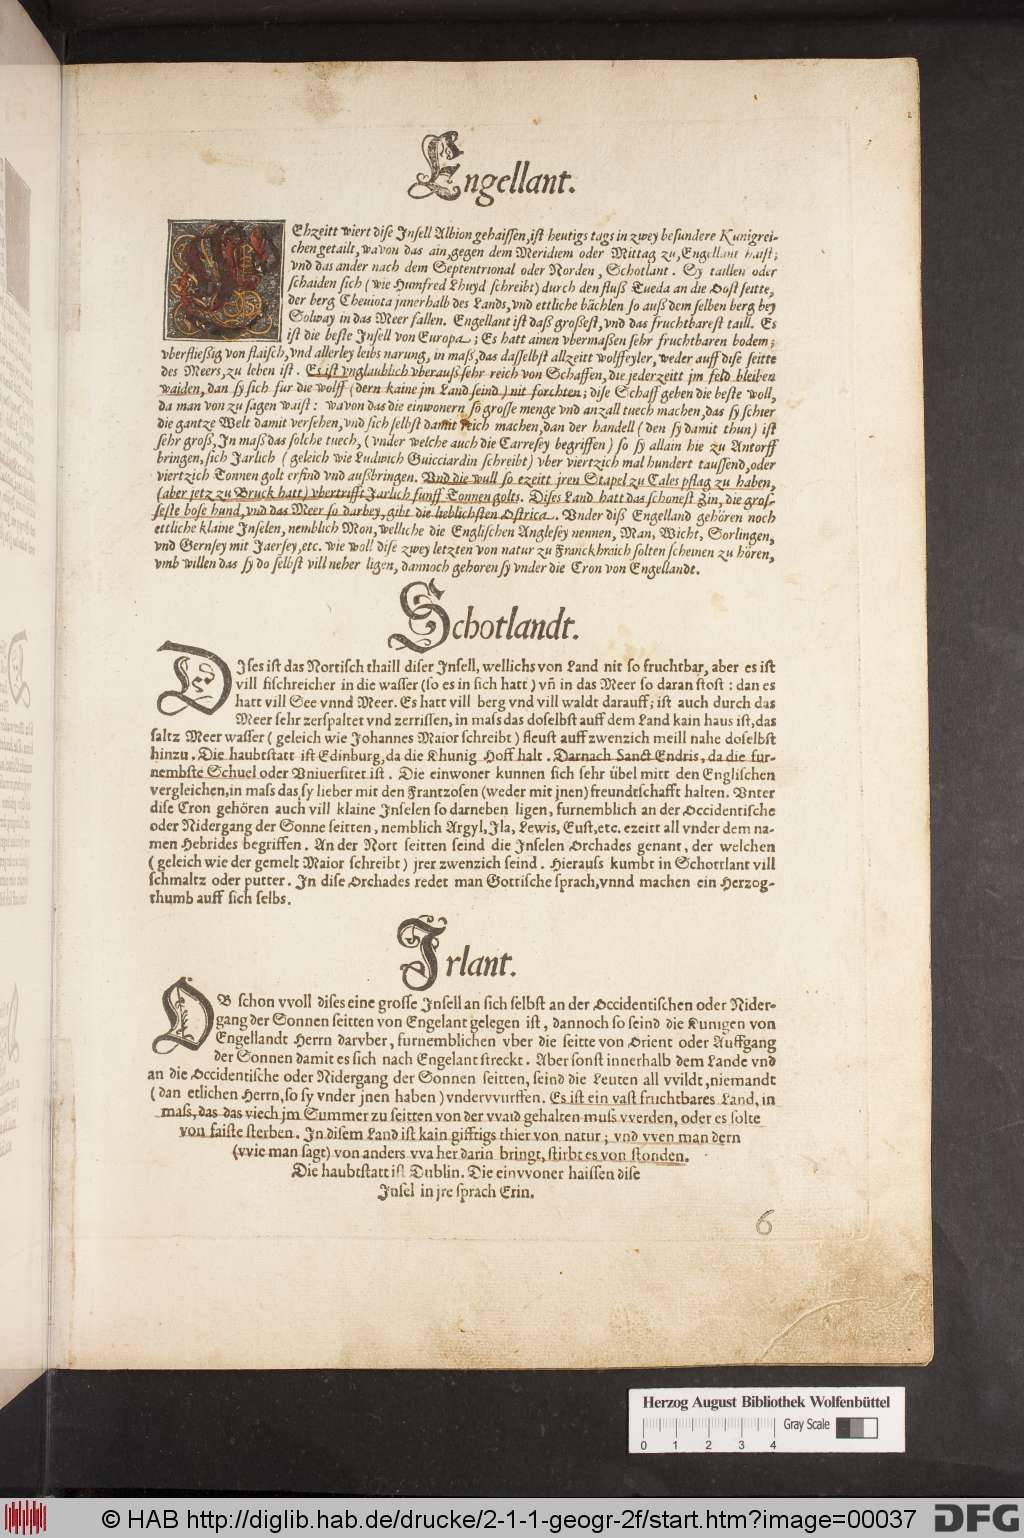 Engellant.
Ehzeitt wiert dise Insell Albion gehaissen, ist heutigs tags in zwey besundere Kunigrei-
chen getailt, wavon das ain, gegen dem Meridiem oder Mittag zu, Engellant haist;
vnd das ander nach dem Septentrional oder Norden, Schotlant. Sy taillen oder
schaiden sich (wie Humfred Lhuyd schreibt) durch den fluß Tueda an die Oost seitte,
der berg Cheuiota jnnerhalb des Lands, vnd ettliche bächlen so auß dem selben berg bey
Solway in das Meer fallen. Engellant ist daß großest, vnd das fruchtbarest taill. Es
ist die beste Insell von Europa; Es hatt ainen vbermaßen sehr fruchtbaren bodem;
vberfließig von flaisch, vnd allerley leibs narung, in maß, das dasselbst allzeitt wolffeyler, weder auff dise seitte
des Meers, zu leben ist. Es ist vnglaublich vberauß sehr reich von Schaffen, die jederzeitt jm feld bleiben
waiden, dan sy sich fur die wolff (dern kaine jm Land seind) nit forchten; dise Schaff geben die beste woll,
da man von zu sagen waist: wavon das die einwonern so grosse menge vnd anzall tuech machen, das sy schier
die gantze Welt damit versehen, vnd sich selbst damit reich machen, dan der handell (den sy damit thun) ist
sehr groß, In maß das solche tuech, (vnder welche auch die Carresey begriffen) so sy allain hie zu Antorff
bringen, sich Jarlich (geleich wie Ludwich Guicciardin schreibt) vber viertzich mal hundert taussend, oder
viertzich Tonnen golt erfind vnd außbringen. Vnd die wull so ezeitt jren Stapel zu Cales pflag zu haben,
(aber jetz zu Bruck hatt) vbertrifft Jarlich funff Tonnen golts. Dises Land hatt das schonest Zin, die gros-
seste bose hund, vnd das Meer so darbey, gibt die lieblichsten Ostrica. Vnder diß Engelland gehören noch
ettliche klaine Inselen, nemblich Mon, welliche die Englischen Anglesey nennen, Man, Wicht, Sorlingen,
vnd Gernsey mit Jaersey, etc. wie woll dise zwey letzten von natur zu Franckhreich solten scheinen zu hören,
vmb willen das sy do selbst vill neher ligen, dannoch gehoren sy vnder die Cron von Engellandt.
Schotlandt.
DIses ist das Nortisch thaill diser Insell, wellichs von Land nit so fruchtbar, aber es ist
vill fischreicher in die wasser (so es in sich hatt) vñ in das Meer so daran stost: dan es
hatt vill See vnnd Meer. Es hatt vill berg vnd vill waldt darauff; ist auch durch das
Meer sehr zerspaltet vnd zerrissen, in mass das doselbst auff dem Land kain haus ist, das
saltz Meer wasser (geleich wie Johannes Maior schreibt) fleust auff zwenzich meill nahe doselbst
hinzu. Die haubtstatt ist Edinburg, da die Khunig Hoff halt. Darnach Sanct Endris, da die fur-
nembste Schuel oder Vniuersitet ist. Die einwoner kunnen sich sehr übel mitt den Englischen
vergleichen, in mass das sy lieber mit den Frantzosen (weder mit jnen) freundtschafft halten. Vnter
dise Cron gehören auch vill klaine Inselen so darneben ligen, furnemblich an der Occidentische
oder Nidergang der Sonne seitten, nemblich Argyl, Ila, Lewis, Eust, etc. ezeitt all vnder dem na-
men Hebrides begriffen. An der Nort seitten seind die Inselen Orchades genant, der welchen
(geleich wie der gemelt Maior schreibt) jrer zwenzich seind. Hierauss kumbt in Schottlant vill
schmaltz oder putter. In dise Orchades redet man Gottische sprach, vnnd machen ein Herzog-
thumb auff sich selbs.
Irlant.
OB schon vvoll dises eine grosse Insell an sich selbst an der Occidentischen oder Nider-
gang der Sonnen seitten von Engelant gelegen ist, dannoch so seind die Kunigen von
Engellandt Herrn daruber, furnemblichen vber die seitte von Orient oder Auffgang
der Sonnen damit es sich nach Engelant streckt. Aber sonst innerhalb dem Lande vnd
an die Occidentische oder Nidergang der Sonnen seitten, seind die Leuten all vvildt, niemandt
(dan etlichen Herrn, so sy vnder jnen haben) vndervvurffen. Es ist ein vast fruchtbares Land, in
mass, das das viech jm Summer zu seitten von der vvaid gehalten muss vverden, oder es solte
von faiste sterben. In disem Land ist kain gifftigs thier von natur; vnd vven man dern
(vvie man sagt) von anders vva her darin bringt, stirbt es von stonden.
Die haubtstatt ist Dublin. Die einvvoner haissen dise
Insel in jre sprach Erin.
6
Herzog August Bibliothek Wolfenbüttel
Gray Scale
0 1 2 3 4
© HAB http://diglib.hab.de/drucke/2-1-1-geogr-2f/start.htm?image=00037
DFG